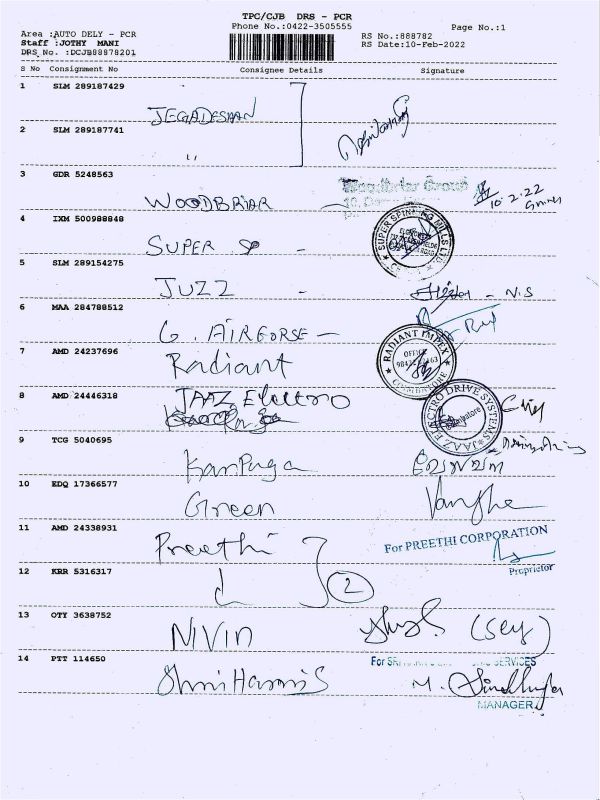 TPC/CJB DRS - PCR
Phone No.:0422-3505555
Page No.:1
Area :AUTO DELY - PCR
Staff :JOTHY MANI
DRS No. :DCJB88878201
RS No.:888782
RS Date:10-Feb-2022
S No Consignment No Consignee Details Signature
1 SLM 289187429
JEGADESAN
2 SLM 289187741
3 GDR 5248563
WOODBRIAR
Woodbriar Group
10.2.22
4 IXM 500988848
SUPER SP -
SUPER SPINNING MILLS LTD.
5 SLM 289154275
JUZZ - N.S
6 MAA 284788512
G. AIRGORSE -
7 AMD 24237696
Radiant
RADIANT IMPEX
OFFICE
COIMBATORE
8 AMD 24446318
JAAZ Electro
JAAZ ELECTRO DRIVE SYSTEMS
Coimbatore
9 TCG 5040695
Kanpaga
10 EDQ 17366577
Green
11 AMD 24338931
Preethi
For PREETHI CORPORATION
Proprietor
12 KRR 5316317
2
13 OTY 3638752
NIVIN
14 PTT 114650
For SRI SERVICES
M.
MANAGER